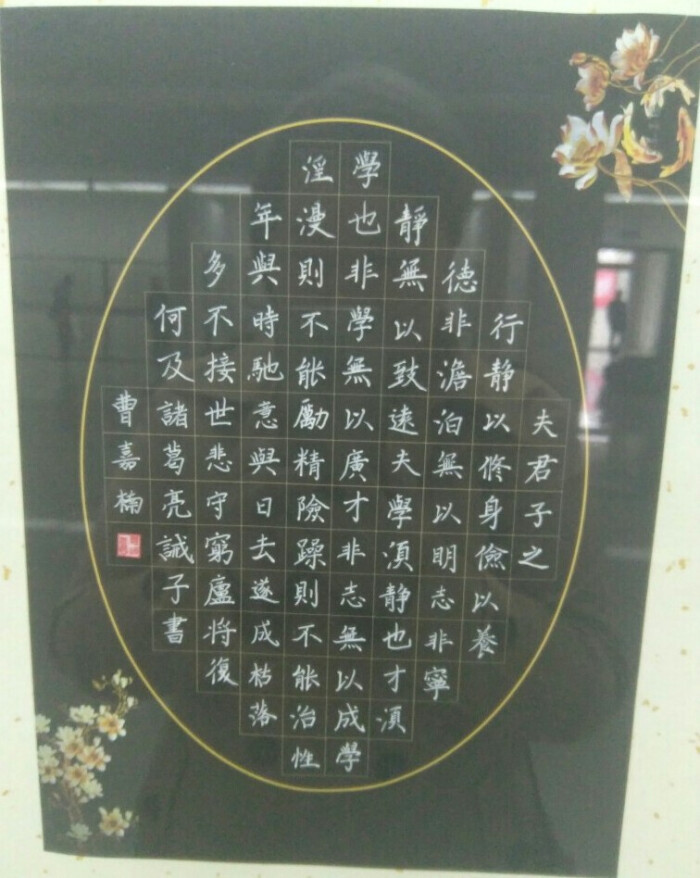 夫君子之
行静以修身儉以養
德非澹泊無以明志非寧
靜無以致遠夫學須靜也才須
學也非學無以廣才非志無以成學
淫漫則不能勵精險躁則不能治性
年與時馳意與日去遂成枯落
多不接世悲守窮廬將復
何及諸葛亮誡子書
曹嘉楠